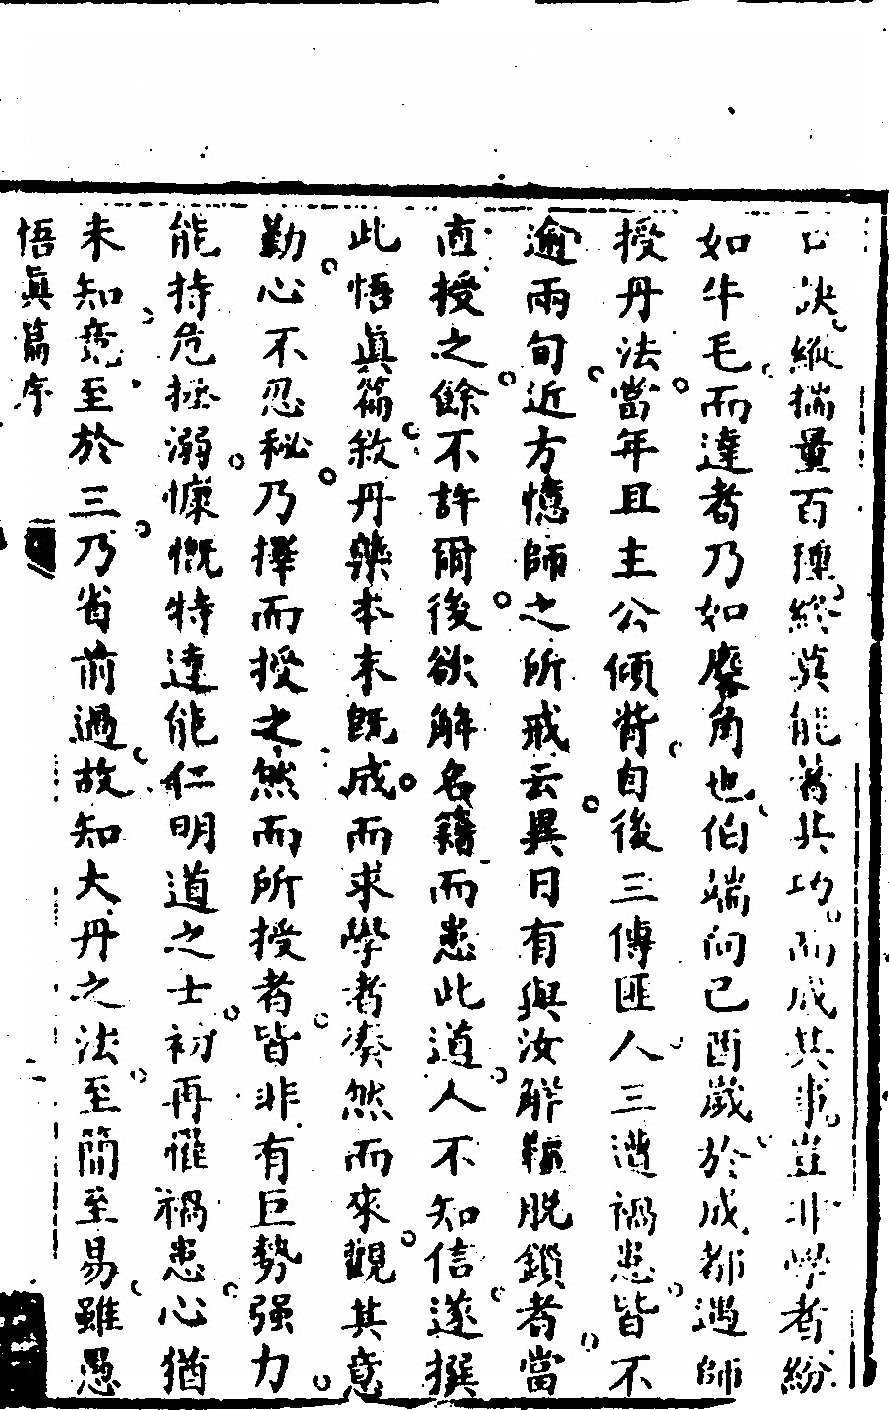 口訣縱揣量百種終莫能著其功而成其事豈非學者紛
如牛毛而達者乃如麟角也伯端向己酉歲於成都遇師
授丹法當年且主公傾背自後三傳匪人三遭禍患皆不
逾兩旬近方憶師之所戒云異日有與汝解韁脫鎖者當
直授之餘不許爾後欲解名籍而患此道人不知信遂撰
此悟眞篇敘丹藥本末既成而求學者湊然而來觀其意
勤心不忍秘乃擇而授之然而所授者皆非有巨勢强力
能持危拯溺慷慨特達能仁明道之士初再罹禍患心猶
未知竟至於三乃省前過故知大丹之法至簡至易雖愚
悟眞篇序